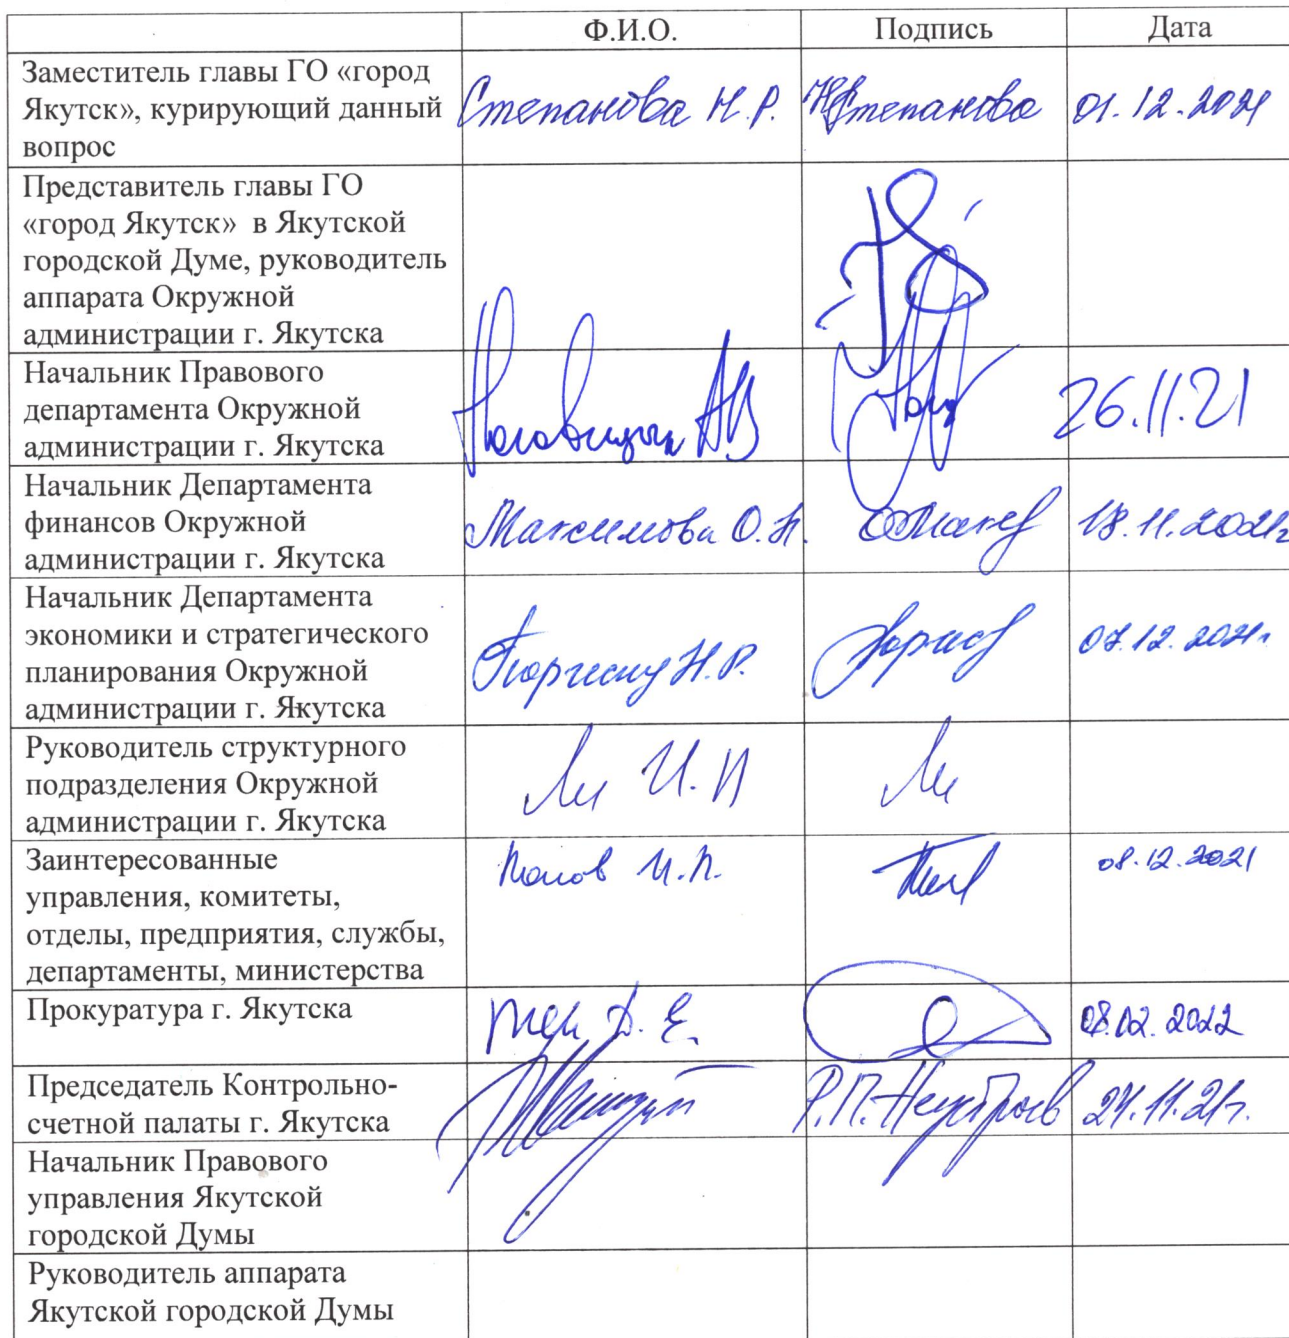 Ф.И.О. Подпись Дата
Заместитель главы ГО «город
Якутск», курирующий данный
вопрос
Степанова Н.Р. НСтепанова 01.12.2021
Представитель главы ГО
«город Якутск» в Якутской
городской Думе, руководитель
аппарата Окружной
администрации г. Якутска
Начальник Правового
департамента Окружной
администрации г. Якутска
Ноговицын АВ 26.11.21
Начальник Департамента
финансов Окружной
администрации г. Якутска
Максимова О.Н. 18.11.2021г
Начальник Департамента
экономики и стратегического
планирования Окружной
администрации г. Якутска
Н.Р. 07.12.2021г
Руководитель структурного
подразделения Окружной
администрации г. Якутска
Ли И.П Ли
Заинтересованные
управления, комитеты,
отделы, предприятия, службы,
департаменты, министерства
Попов И.П. 08.12.2021
Прокуратура г. Якутска
Д.Е. 08.02.2022
Председатель Контрольно-
счетной палаты г. Якутска
Р.П. Неустроев 24.11.21г.
Начальник Правового
управления Якутской
городской Думы
Руководитель аппарата
Якутской городской Думы